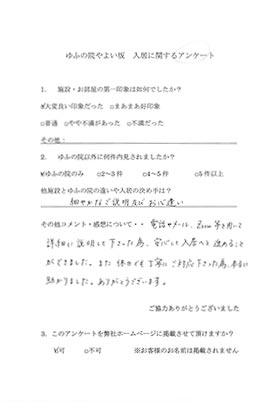 ゆふの院やよい坂　入居に関するアンケート
1.　施設・お部屋の第一印象は如何でしたか？
☑大変良い印象だった　□まあまあ好印象
□普通　□やや不満があった　□不満だった
その他：
2.　ゆふの院以外に何件内見されましたか？
☑ゆふの院のみ　□2～3件　□4～5件　□5件以上
他施設とゆふの院の違いや入居の決め手は？
細やかなご説明及びお心遣い
その他コメント・感想について・・電話やメール、Zoom等を用いて
詳細に説明して下さった為、安心して入居へと進めることが
できました。また 休日でも丁寧にご対応下さった為、本当に
助かりました。ありがとうございます。
ご協力ありがとうございました
3. このアンケートを弊社ホームページに掲載させて頂けますか？
☑可　□不可　※お客様のお名前は掲載されません